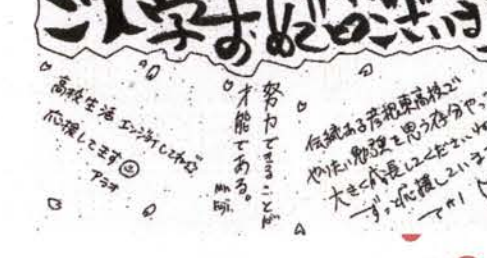 ご入学おめでとうございま
高校生活 エンジョイしてね
応援してます
アラオ
努力できることが
才能である。
Mr. Fuji.
伝統ある彦根東高校で
やりたい勉強を思う存分やっ
大きく成長してください
ずっと応援していま